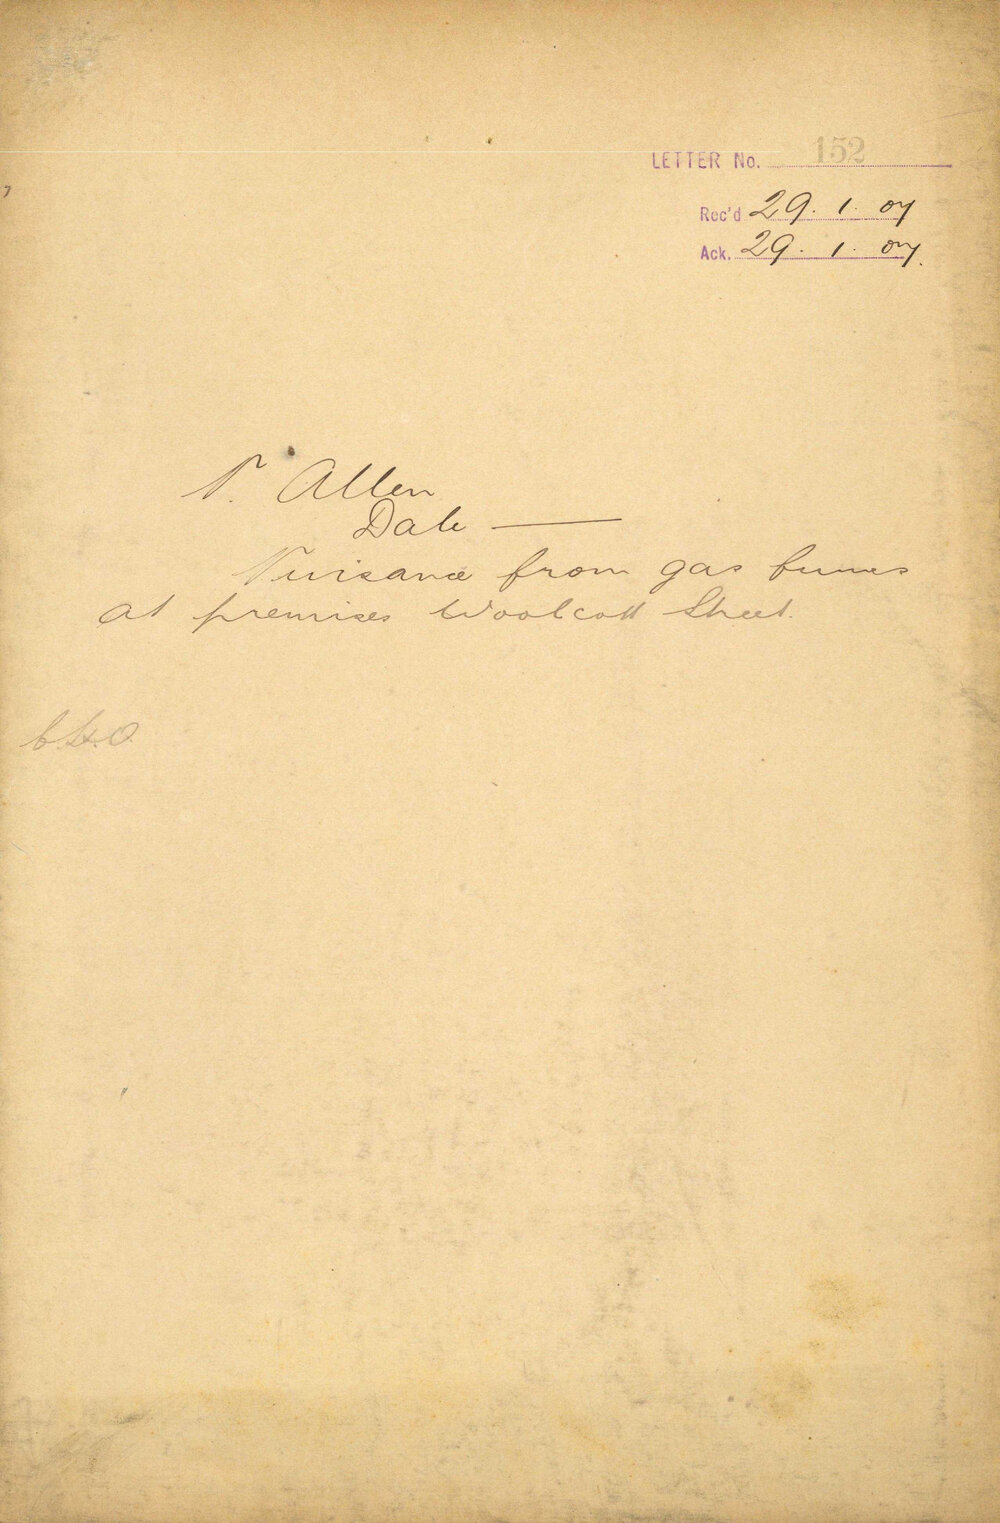 LETTER No. 152
Rec'd 29. 1. 07
Ack. 29. 1. 07.
T. Allen
Date —
Nuisance from gas fumes
at premises Woolcott Street.
C.H.O.